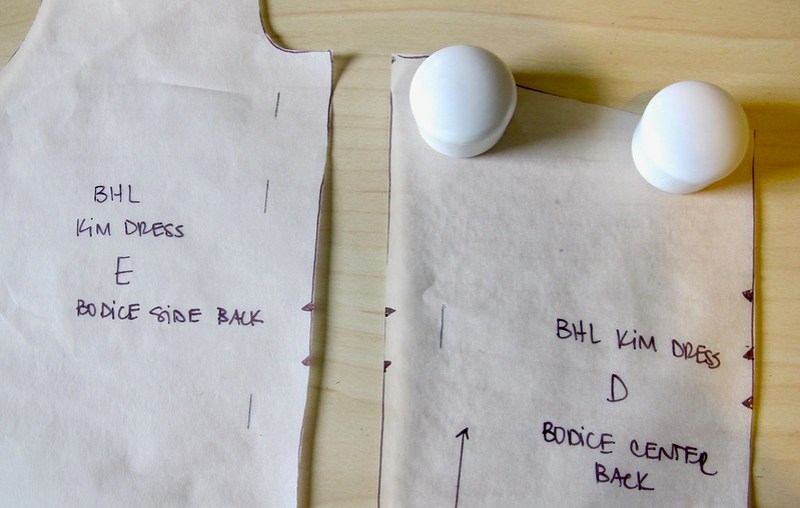 BHL
KiM DRESS
E
BODiCE SiDE BACK
BHL KiM DRESS
D
BODiCE CENTER
BACK